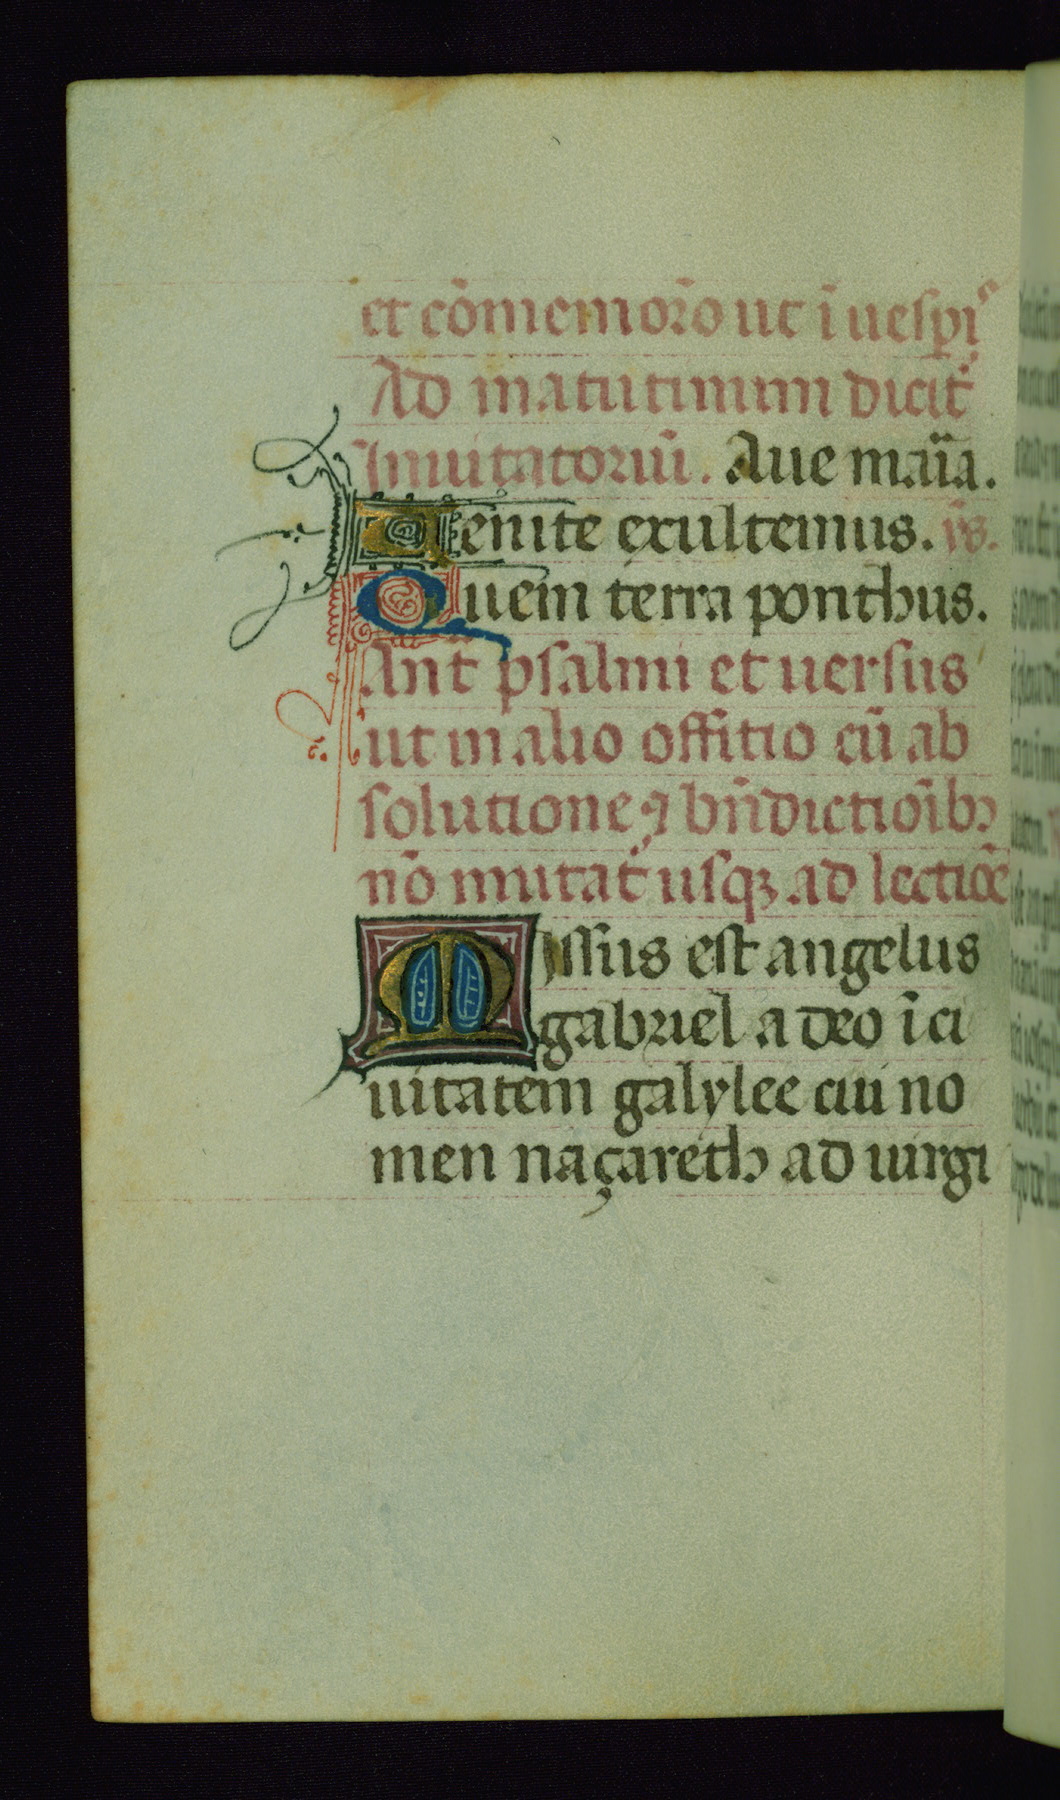 et cōmemorō ut ī uesp̄i⁹
Ad matutinum dicit᷑
Inuitatoriū. Aue maīa.
Venite exultemus. p̄s.
Quem terra ponthus.
Ant̄ psalmi et uersus
ut in alio offitio cū ab
solutione ⁊ bn̄dictiōibꝫ
nō mutat᷑ usqꝫ ad lectiōē
Missus est angelus
gabriel a deo ī ci
uitatem galylee cui no
men naçareth ad uirgi